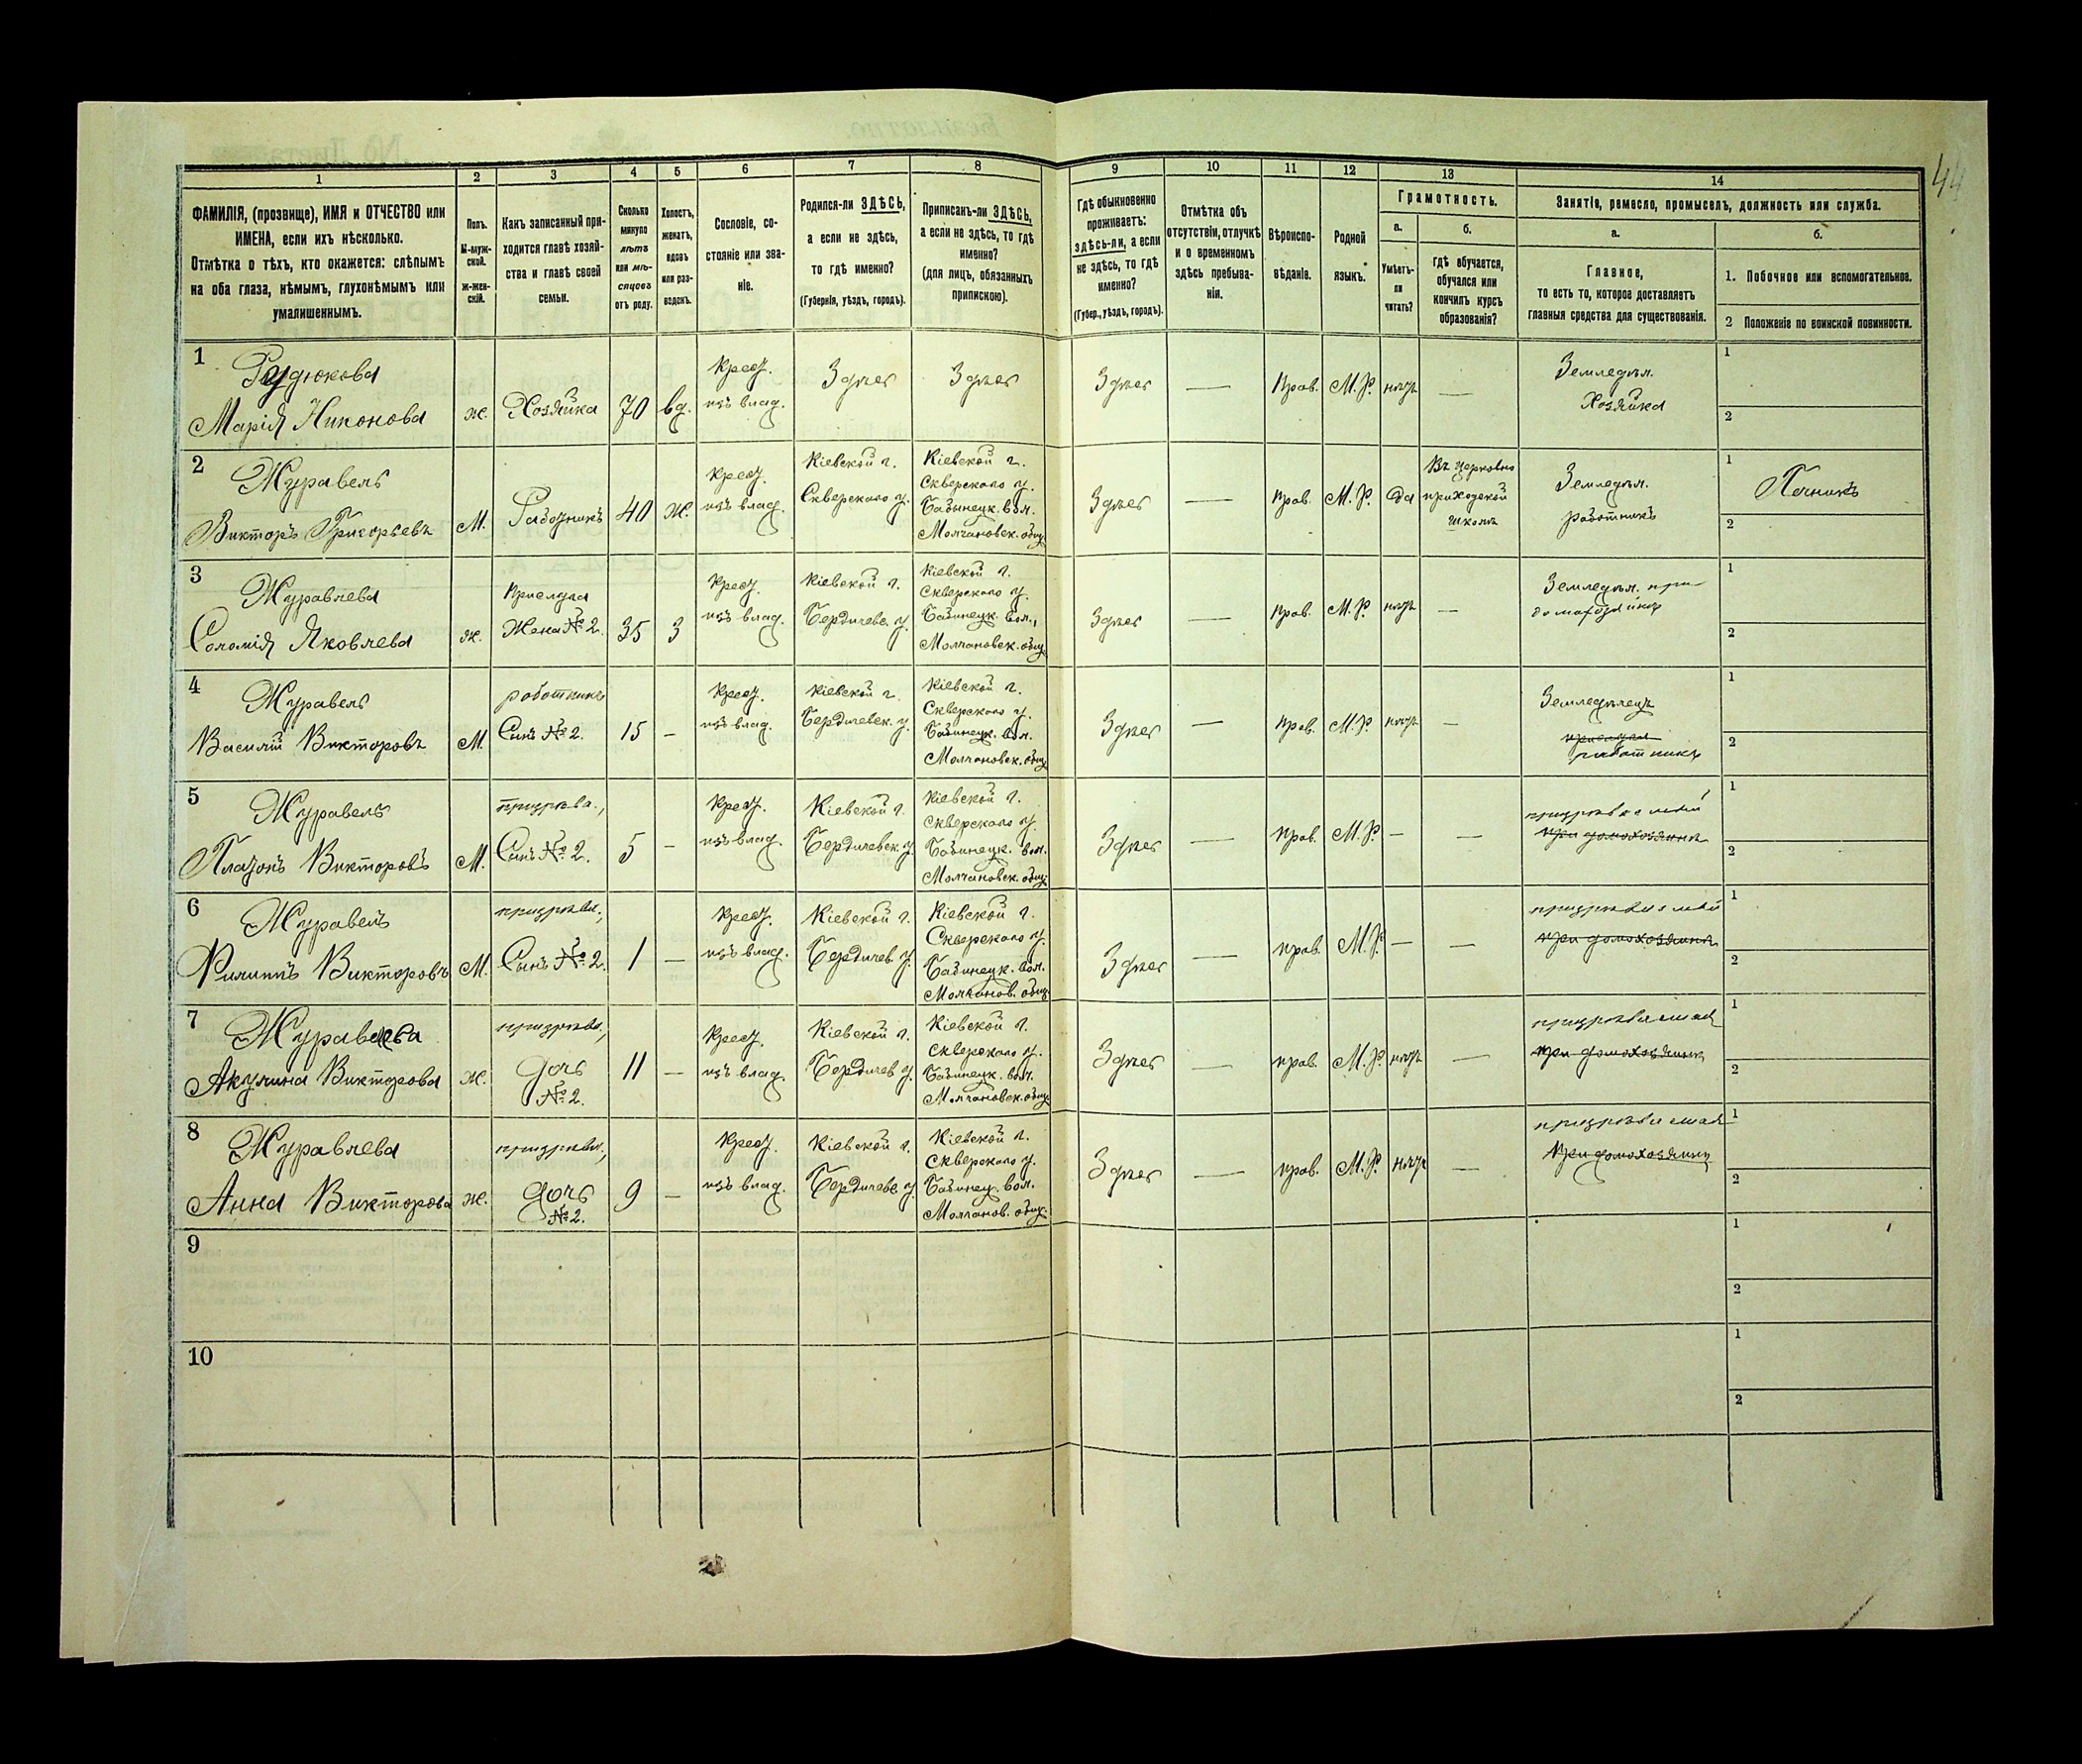 44
1
2
3
4
5
6
7
8
9
10
11
12
13
14
ФАМИЛІЯ, (прозвище), ИМЯ и ОТЧЕСТВО или
ИМЕНА, если ихъ нѣсколько.
Отмѣтка о тѣхъ, кто окажется: слѣпымъ
на оба глаза, нѣмымъ, глухонѣмымъ или
умалишеннымъ.
Полъ.
М-муж-
ской.
Ж-жен-
скій.
Какъ записанный при-
ходится главѣ хозяй-
ства и главѣ своей
семьи.
Сколько
минуло
лѣтъ
или мѣ-
сяцевъ
отъ роду.
Холостъ,
женатъ,
вдовъ
или раз-
веденъ.
Сословіе, со-
стояніе или зва-
ніе.
Родился-ли ЗДѢСЬ,
а если не здѣсь,
то гдѣ именно?
(Губернія, уѣздъ, городъ).
Приписанъ-ли ЗДѢСЬ,
а если не здѣсь, то гдѣ
именно?
(для лицъ, обязанныхъ
припискою).
Гдѣ обыкновенно
проживаетъ:
здѣсь-ли, а если
не здѣсь, то гдѣ
именно?
(Губер., уѣздъ, городъ).
Отмѣтка объ
отсутствіи, отлучкѣ
и о временномъ
здѣсь пребыва-
ніи.
Вѣроиспо-
вѣданіе.
Родной
языкъ.
Грамотность.
а.
Умѣетъ-
ли
читать?
б.
гдѣ обучается,
обучался или
кончилъ курсъ
образованія?
Занятіе, ремесло, промыселъ, должность или служба.
а.
Главное,
то есть то, которое доставляетъ
главныя средства для существованія.
б.
1. Побочное или вспомогательное.
2 Положеніе по воинской повинности.
1
Рудюкова
Марія Никонова
ж.
Хозяйка
70
вд.
Крест.
изъ влад.
Здѣсь
Здѣсь
Здѣсь
—
Прав.
М.Р.
нѣтъ
—
Земледѣл.
Хозяйка
1
2
2
Журавель
Викторъ Григорьевъ
М.
Работникъ
40
ж.
Крест.
изъ влад.
Кіевской г.
Сквирскаго у.
Кіевской г.
Сквирскаго у.
Бабинецк. вол.
Молчановск. общ.
Здѣсь
—
Прав.
М.Р.
Да
Въ церковно
приходской
школѣ
Земледѣл.
работникъ
1
Печникъ
2
3
Журавлева
Соломія Яковлева
ж.
Прислуга
Жена № 2.
35
З
Крест.
изъ влад.
Кіевской г.
Бердичевс. у.
Кіевской г.
Сквирскаго у.
Бабинецк. вол.,
Молчановск. общ.
Здѣсь
—
Прав.
М.Р.
нѣтъ
—
Земледѣл. при
домохозяинѣ
1
2
4
Журавель
Василій Викторовъ
М.
работникъ
Сынъ № 2.
15
—
Крест.
изъ влад.
Кіевской г.
Бердичевск. у.
Кіевской г.
Сквирскаго у.
Бабинецк. вол.
Молчановск. общ.
Здѣсь
—
Прав.
М.Р.
нѣтъ
—
Земледѣлецъ
работникъ
1
2
5
Журавель
Платонъ Викторовъ
М.
призрѣва.,
Сынъ № 2.
5
—
Крест.
изъ влад.
Кіевской г.
Бердичевск. у.
Кіевской г.
Сквирскаго у.
Бабинецк. вол.
Молчановск. общ.
Здѣсь
—
Прав.
М.Р.
—
—
призрѣваемый
при домохозяинѣ
1
2
6
Журавель
Филиппъ Викторовъ
М.
призрѣва.,
Сынъ № 2.
1
—
Крест.
изъ влад.
Кіевской г.
Бердичев. у.
Кіевской г.
Сквирскаго у.
Бабинецк. вол.
Молчанов. общ.
Здѣсь
—
прав.
М.Р.
—
—
призрѣваемый
при домохозяинѣ
1
2
7
Журавлева
Акулина Викторова
ж.
призрѣва.,
дочь
№ 2.
11
—
Крест.
изъ влад.
Кіевской г.
Бердичев. у.
Кіевской г.
Сквирскаго у.
Бабинецк. вол.
Молчановск. общ.
Здѣсь
—
прав.
М.Р.
нѣтъ
—
призрѣваемая
при домохозяинѣ
1
2
8
Журавлева
Анна Викторова
ж.
призрѣва.,
дочь
№ 2.
9
—
Крест.
изъ влад.
Кіевской г.
Бердичевс. у.
Кіевской г.
Сквирскаго у.
Бабинец. вол.
Молчанов. общ.
Здѣсь
—
прав.
М.Р.
нѣтъ
—
призрѣваемая
при домохозяинѣ
1
2
9
1
2
10
1
2